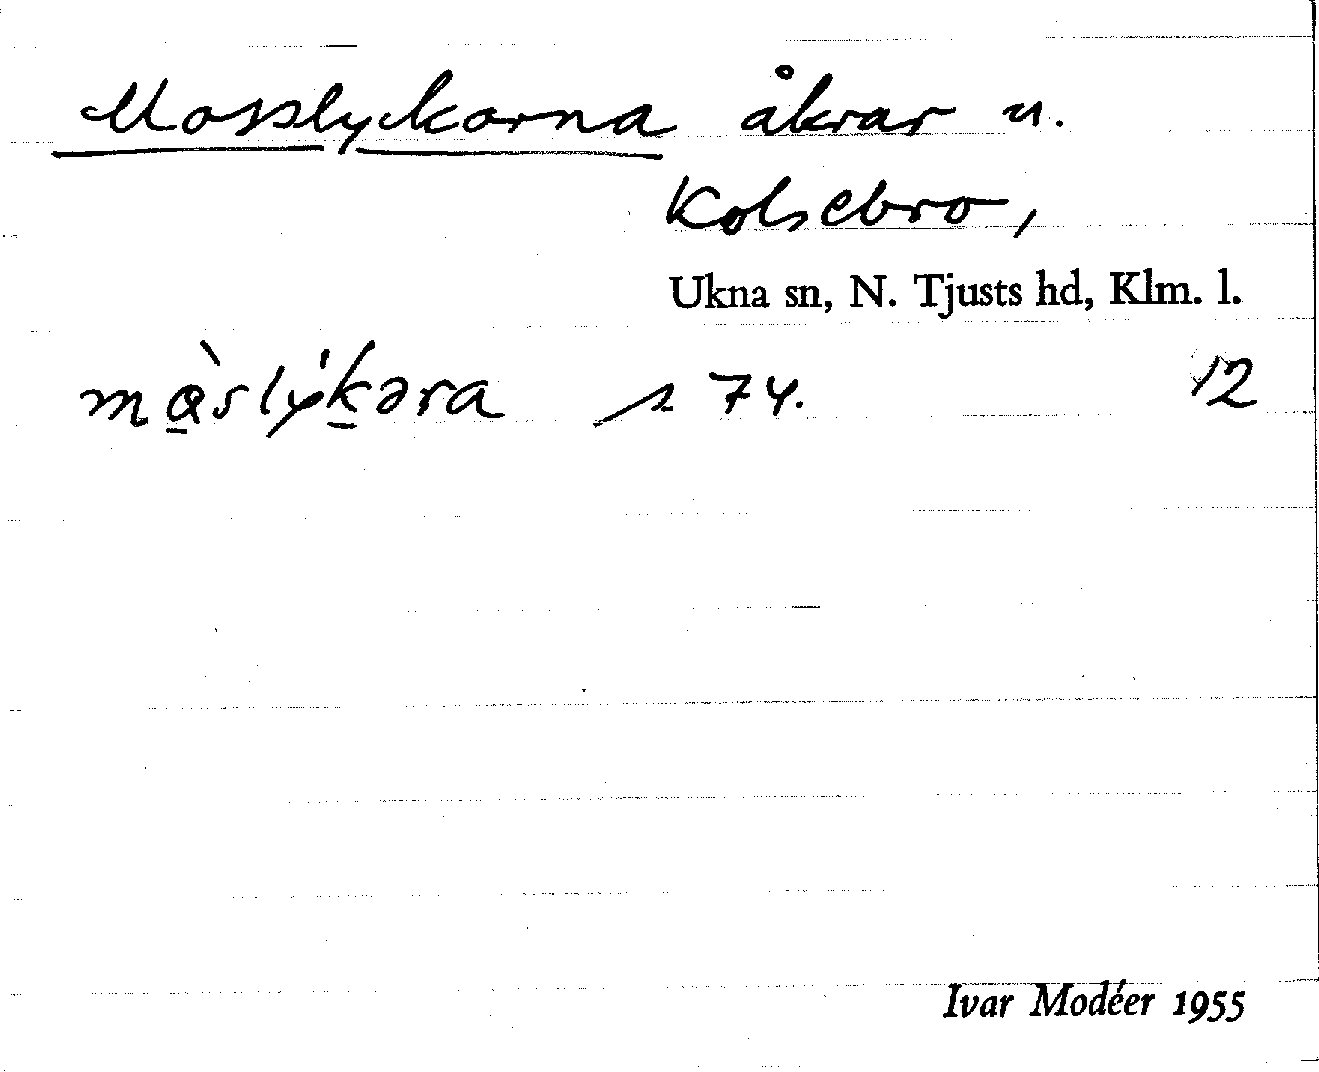 Mosslyckorna åkrar u.
Kolsebro,
Ukna sn, N. Tjusts hd, Klm. l.
s 74. 12
Ivar Modéer 1955